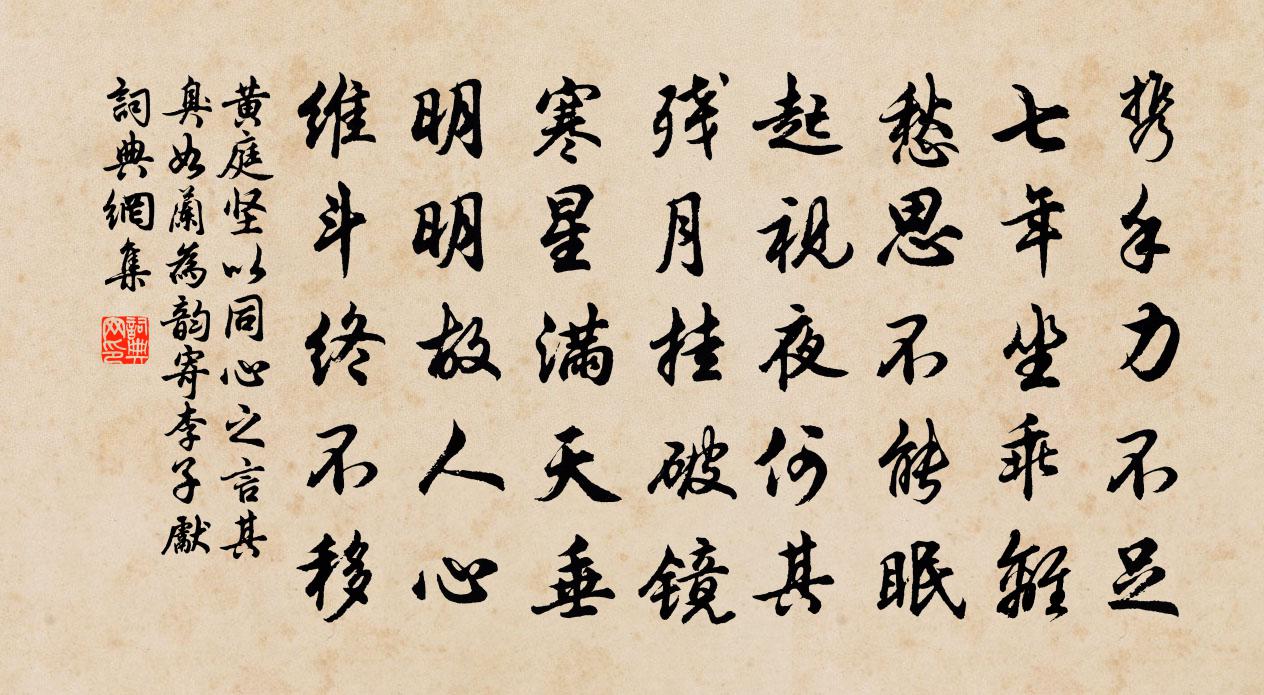 携手力不足
七年坐乖離
愁思不能眠
起視夜何其
残月挂破镜
寒星满天垂
明明故人心
维斗终不移
黄庭坚以同心之言其
臭如蘭為韵寄李子獻
詞典網集
詞典网印